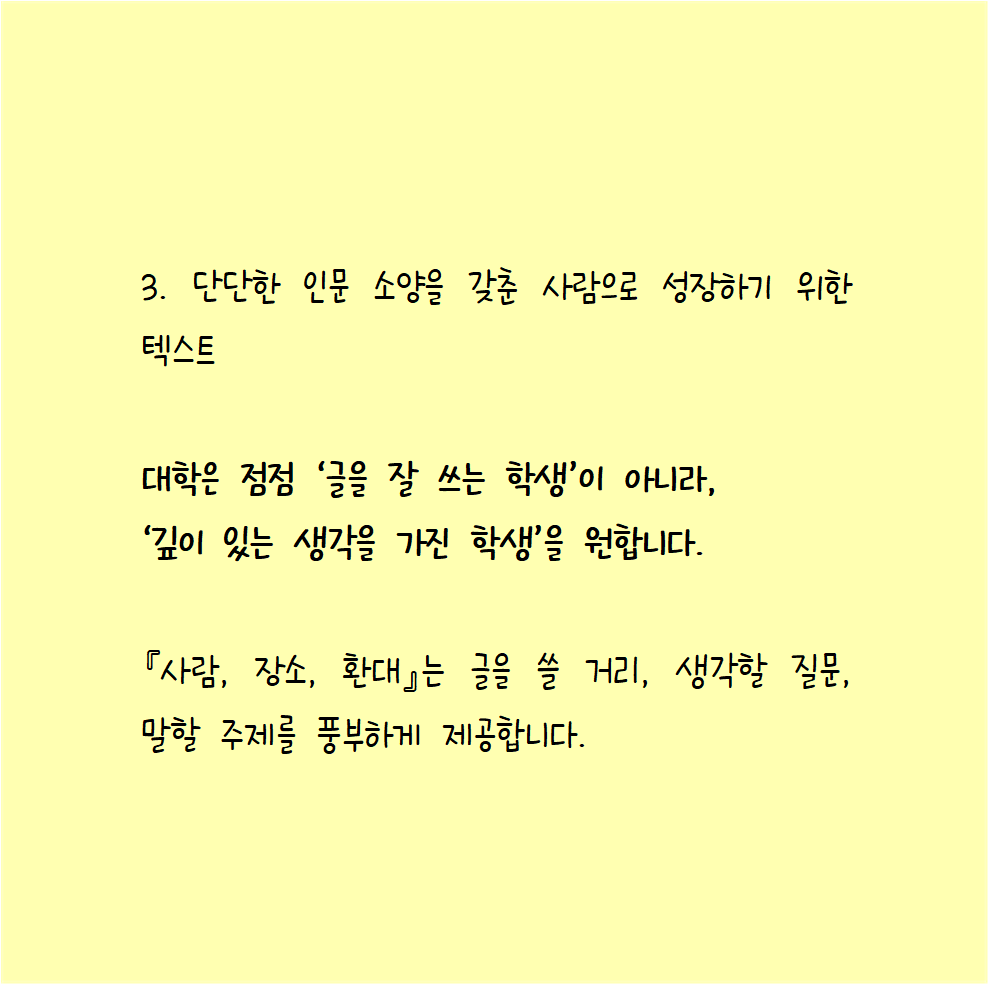 3. 단단한 인문 소양을 갖춘 사람으로 성장하기 위한
텍스트
대학은 점점 ‘글을 잘 쓰는 학생’이 아니라,
‘깊이 있는 생각을 가진 학생’을 원합니다.
『사람, 장소, 환대』는 글을 쓸 거리, 생각할 질문,
말할 주제를 풍부하게 제공합니다.